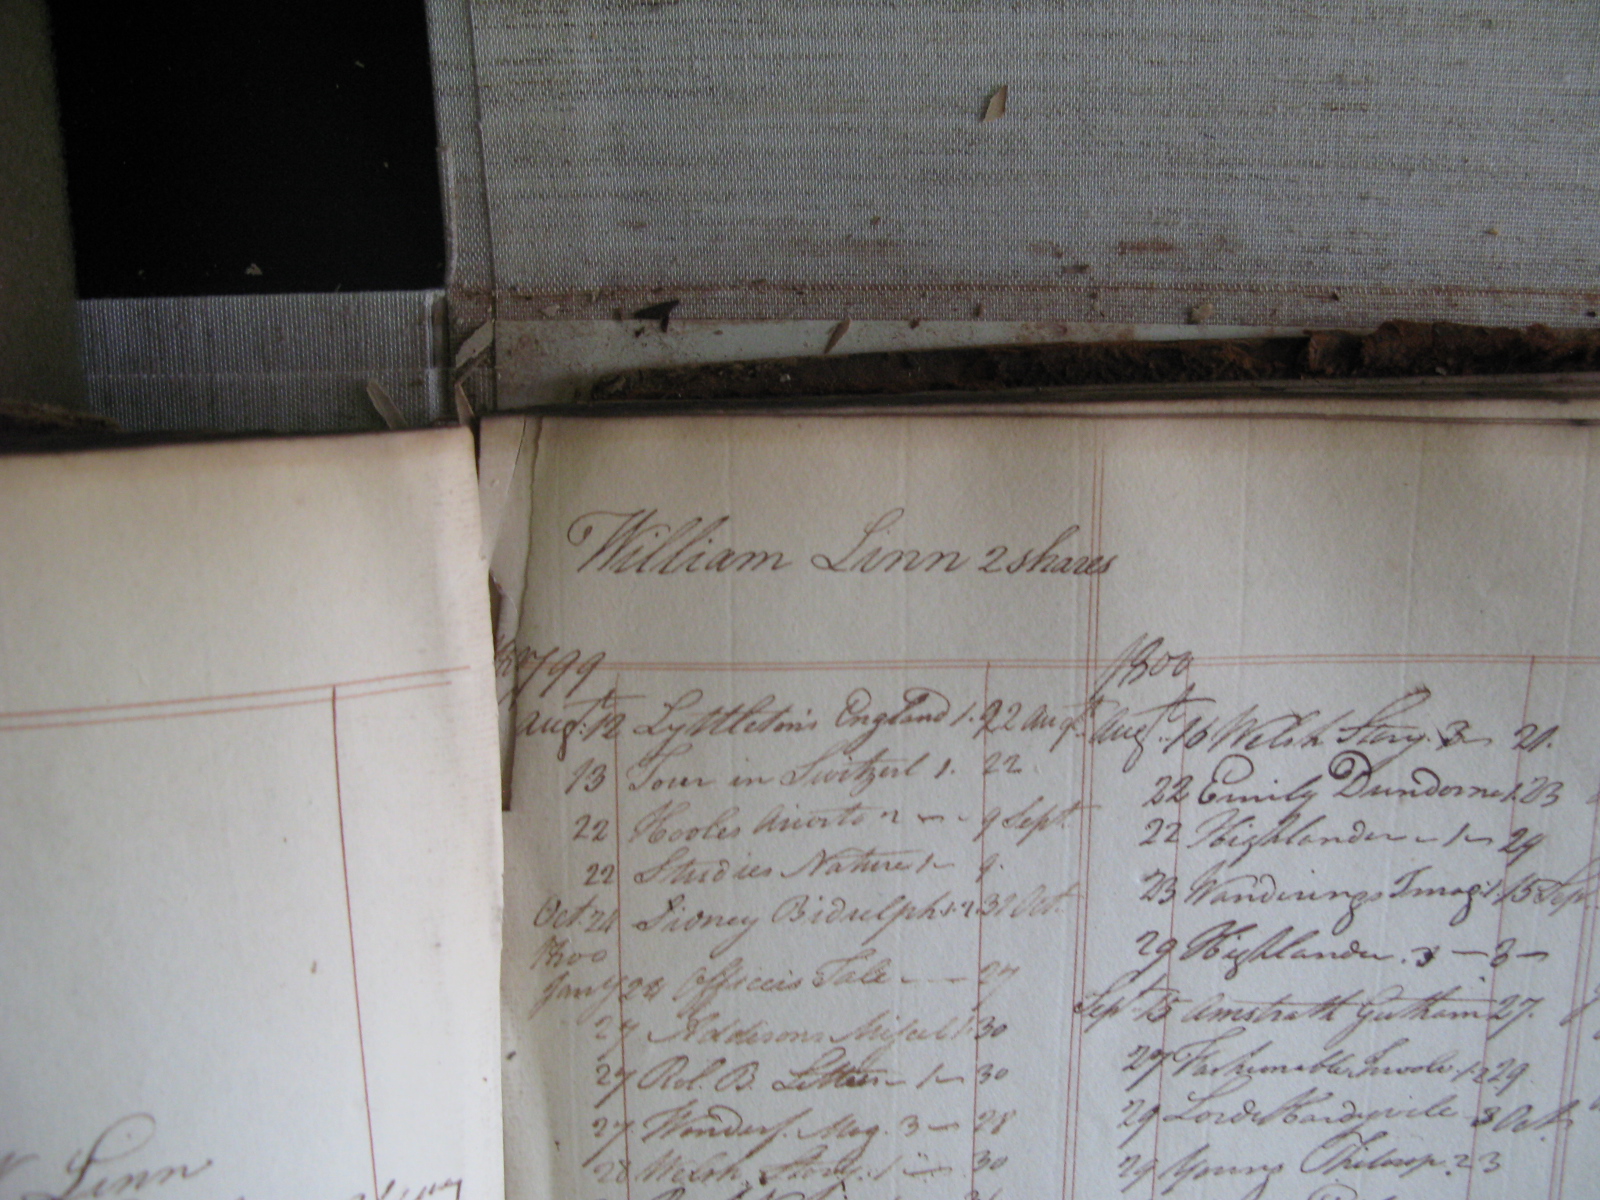 William Linn 2 shares
1799
Augt. 12 Lyttleton's England 1. 2 22 Augt.
13 Tour in Switzerl 1. 22
22 Hooles Ariosto 9 Sept
22 Studies Nature 1 9.
Oct. 24 Sidney Bidulph 1. 2. 31 Oct.
1800
Jany 24 Officers Tale 27
27 Addisons Miscel 1. 30
27 Rol. B. Letters 1 30
27 Wonderf. Mag. 3 28
28 Welsh Story. 1 30
1800
Augt. 16 Welsh Story. 3 21.
22 Emily Dundorne 1. 23
22 Highlander 1 29
23 Wanderings Imag. 1. 15 Sep.
29 Highlander. 3 3
Sept 15 27.
27 Fashionable 1. 2 29
29 Lord Hardyvile 3 Oct.
29 Young Philosop. 2 3
Linn